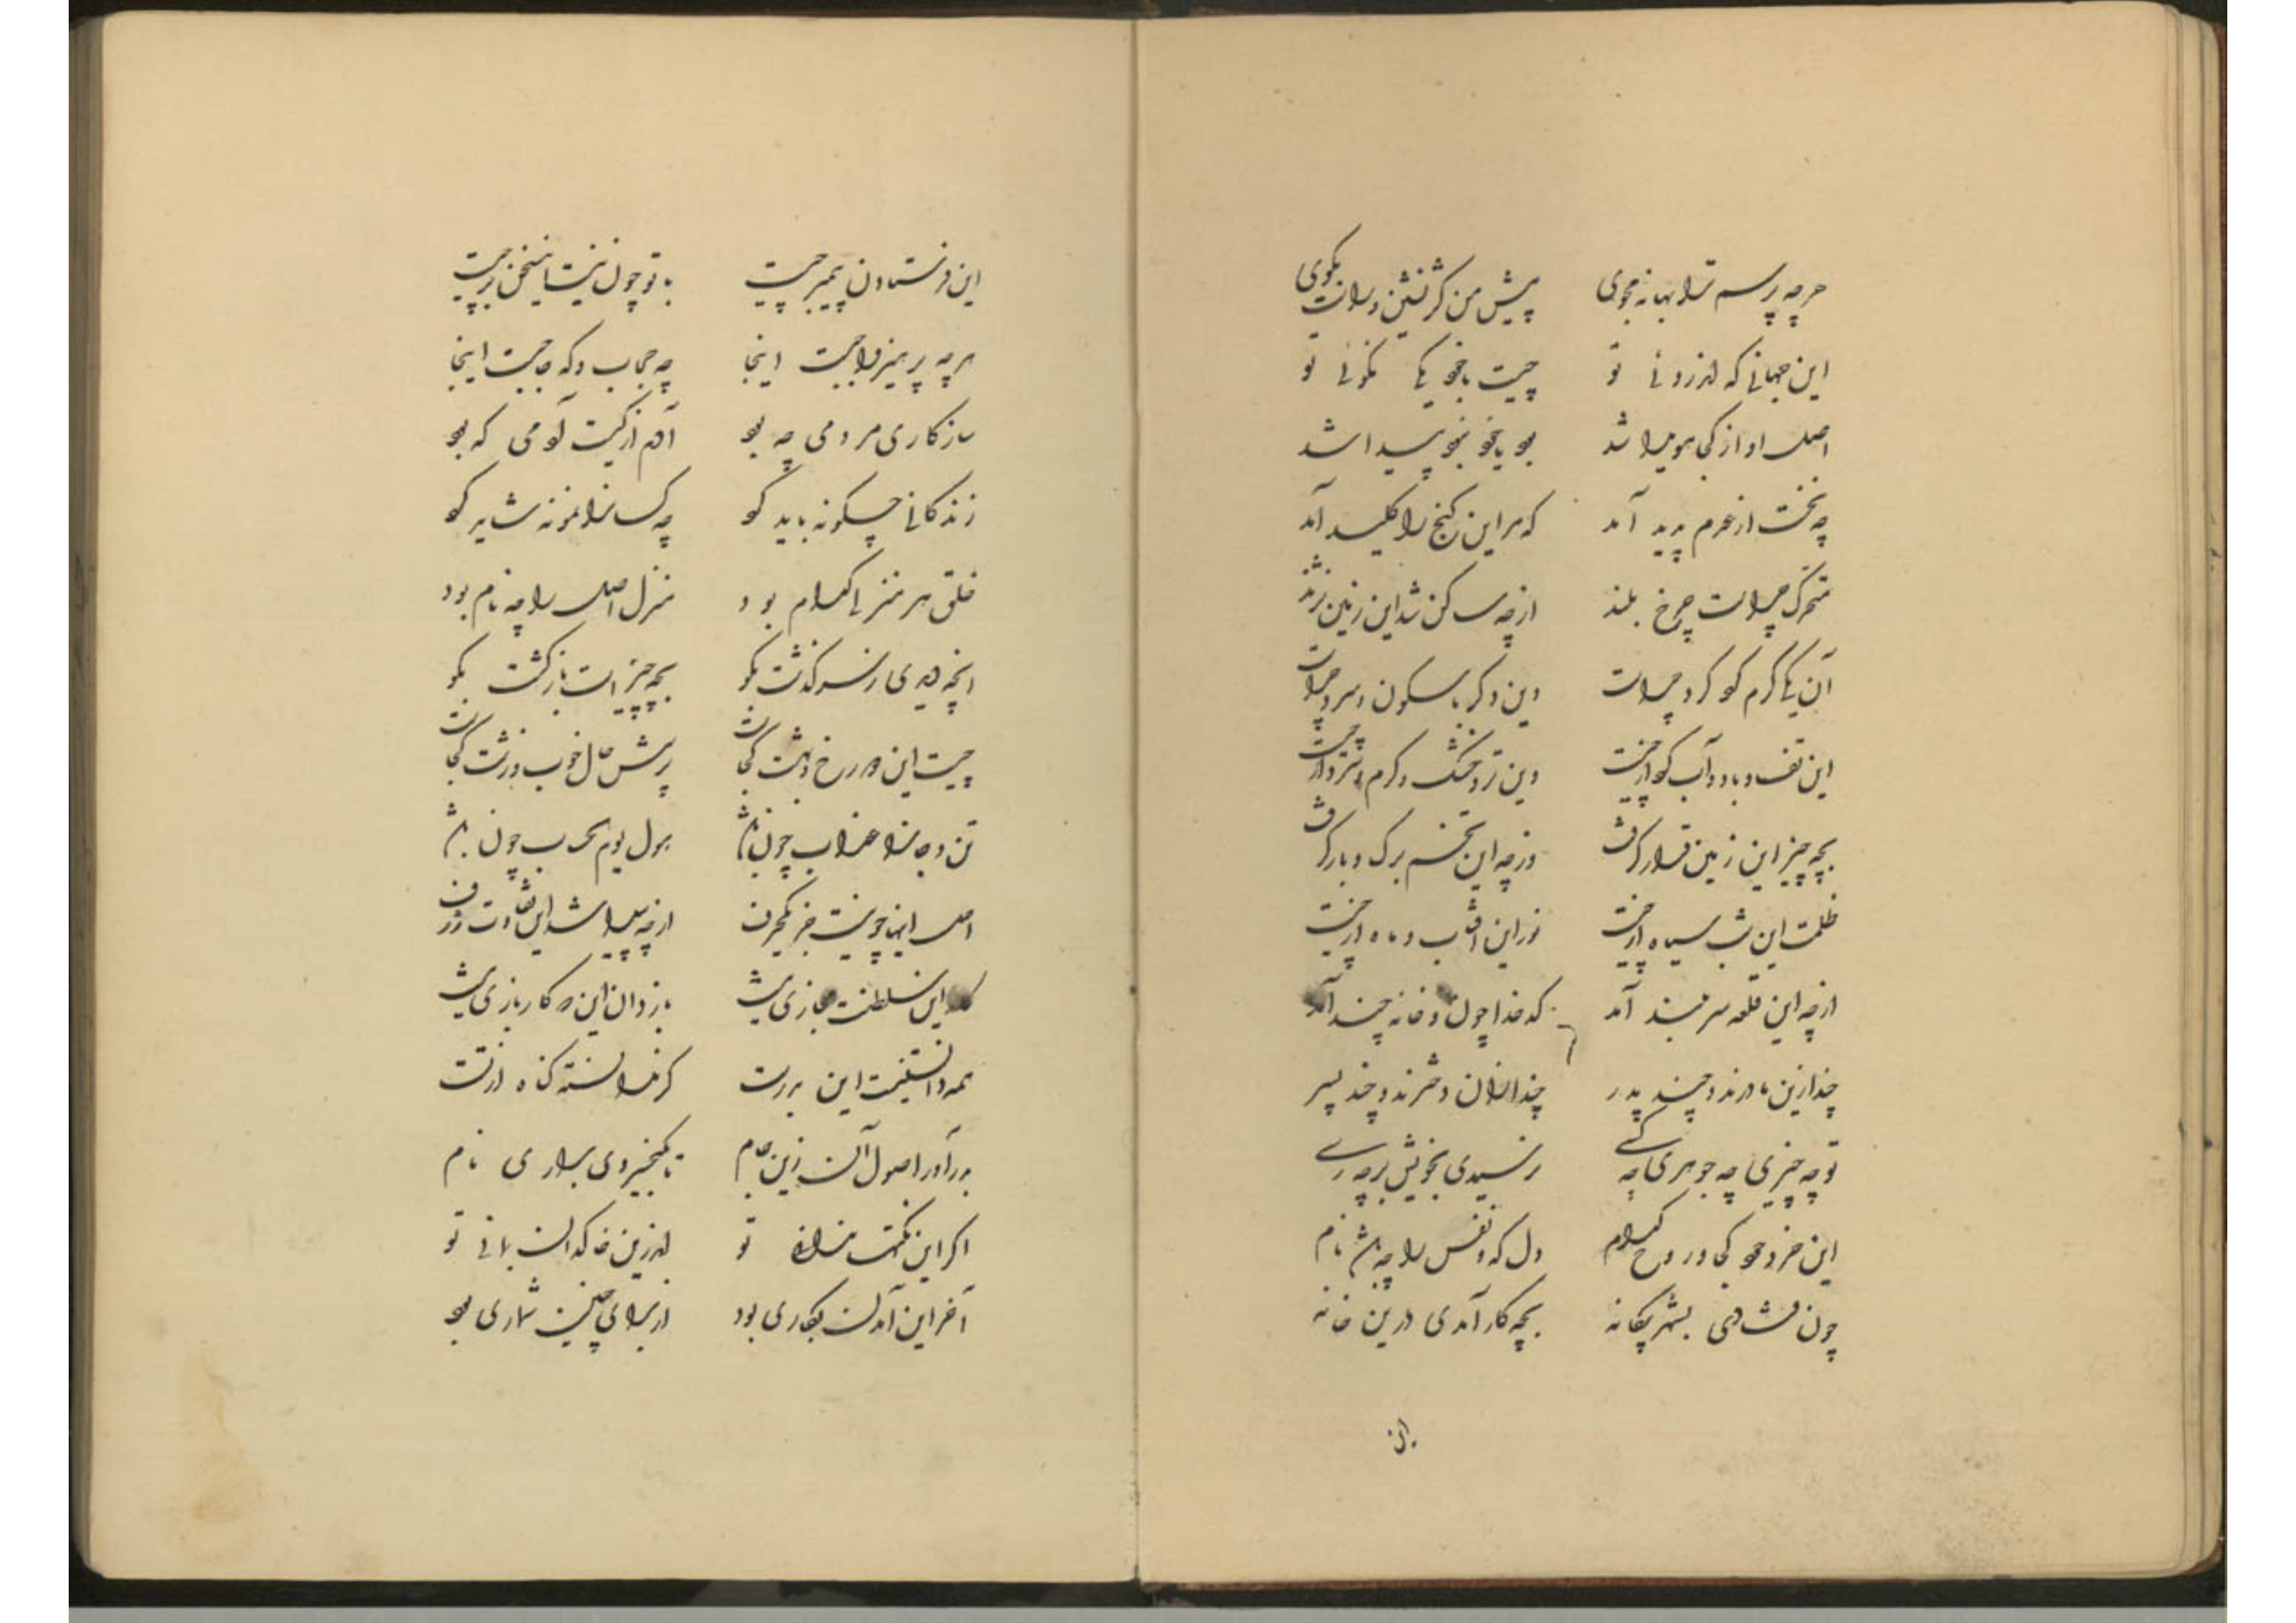 هرچه پرسم ترا بهانه مجوی	پیش من کژ نشین و راست بگوی
این جهانی که اندرونی تو	چیست با خود یکی نکونی تو
اصل او از کجا هویدا شد	بود یا خود نبود پیدا شد
چه نخست از عدم پدید آمد	که مر این گنج را کلید آمد
متحرک چراست چرخ بلند	از چه ساکن شد این زمین نژند
آن یکی گرم کو گرد چراست	وین دگر با سکون و سرد چراست
این تف و باد و آب کو از چیست	وین تر و خشک و گرم و تر از چیست
بچه چیز این زمین قرار گرفت	وز چه این تخم برگ و بار گرفت
ظلمت این شب سیاه از چیست	نور این آفتاب و ماه از چیست
از چه این قلعه سربلند آمد	کدخدا چون دو خانه چند آمد
چند ازین مادرند و چند پدر	چند از ایشان دخترند و چند پسر
تو چه چیزی چه جوهری چه کسی	نرسیدی بخویش برچه رسی
این خرد خود کجا و روح کدام	دل که و نفس را چه باشد نام
چون فتادی بشهر بیگانه	بچه کار آمدی درین خانه
این فرستادن پیمبر چیست	با تو چون نیست این سخن بر چیست
هرچه پرهیز واجبست اینجا	چه حجاب و که حاجبست اینجا
سازکاری مردمی چه بود	آدم از کیست آدمی که بود
زندگانی چگونه باید گو	چه کسانرا نمونه شاید گو
خلق هر منزلی کدام بود	منزل اصل را چه نام بود
انچه دیدی ز سرگذشت بگو	بچه چیز است بازگشت بگو
چیست این دوزخ و بهشت کجاست	پرسش حال خوب و زشت کجاست
تن و جانرا عذاب چون باشد	هول یوم حساب چون باشد
اصل اینها چو نیست جز یکحرف	از چه پیدا شد این تفاوت ژرف
این سلطنت بازی نیست	باز دان این که کار بازی نیست
همه دانستنیست این بررست	گر ندانسته گناه از تست
بدرآور اصول آن زین جام	تا بکیخسروی براری نام
اگر این نکتها ندانی تو	اندرین خاکدان بمانی تو
آخر این آمدن بکاری بود	از برای چنین شماری بود